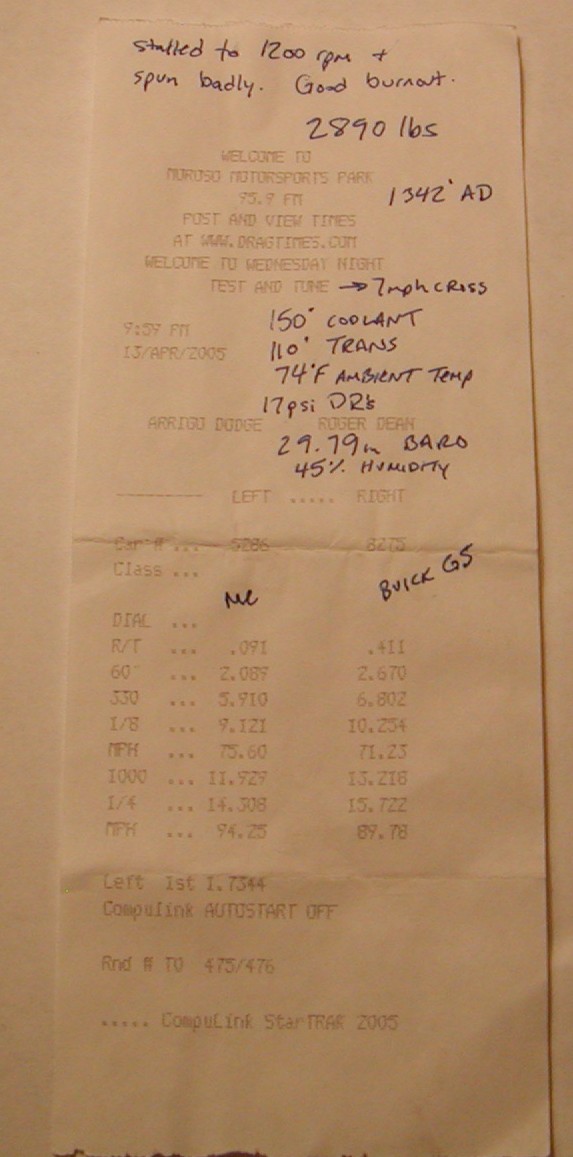 stalled to 1200 rpm +
spun badly. Good burnout.
2890 lbs
WELCOME TO
MOROSO MOTORSPORTS PARK
95.9 FM
1342' AD
POST AND VIEW TIMES
AT WWW.DRAGTIMES.COM
WELCOME TO WEDNESDAY NIGHT
TEST AND TUNE → 7mph CROSS
150° COOLANT
9:59 PM
110° TRANS
13/APR/2005
74°F AMBIENT TEMP
17psi DR's
ARRIGO DODGE ROGER DEAN
29.79in BARO
45% HUMIDITY
--------- LEFT ..... RIGHT
Car # ... 5286 8275
Class ...
ME BUICK GS
DIAL ...
R/T ... .091 .411
60' ... 2.089 2.670
330 ... 5.910 6.802
1/8 ... 9.121 10.254
MPH ... 75.60 71.23
1000 ... 11.929 13.218
1/4 ... 14.308 15.722
MPH ... 94.25 89.78
Left 1st 1.7344
Compulink AUTOSTART OFF
Rnd # TO 475/476
..... CompuLink StarTRAK 2005